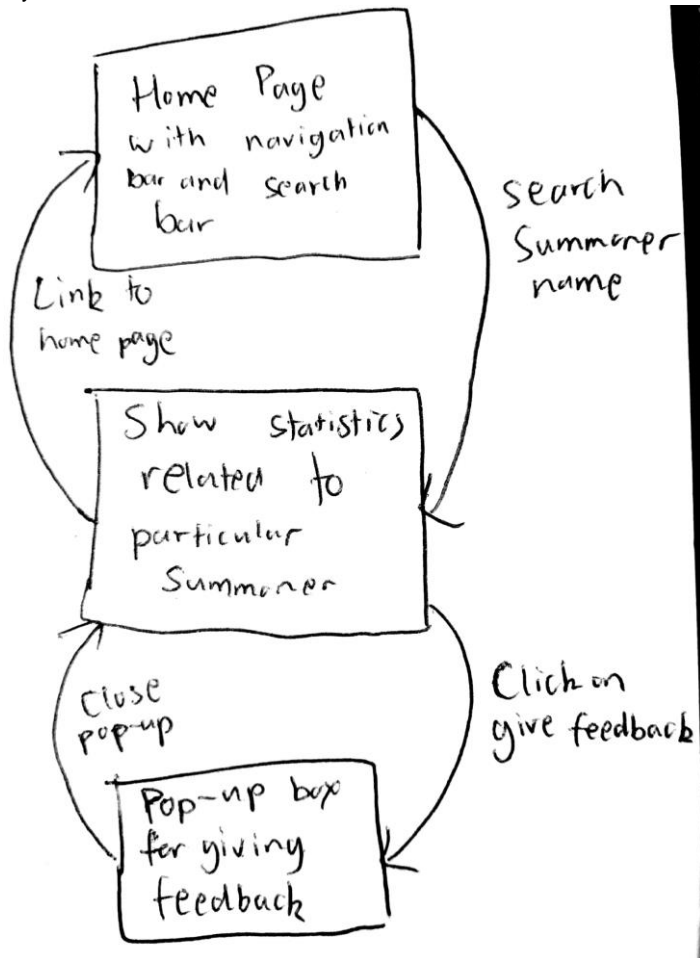 Home Page
with navigation
bar and search
bar
search
Summoner
name
Link to
home page
Show statistics
related to
particular
Summoner
Close
pop-up
Click on
give feedback
Pop-up box
for giving
feedback